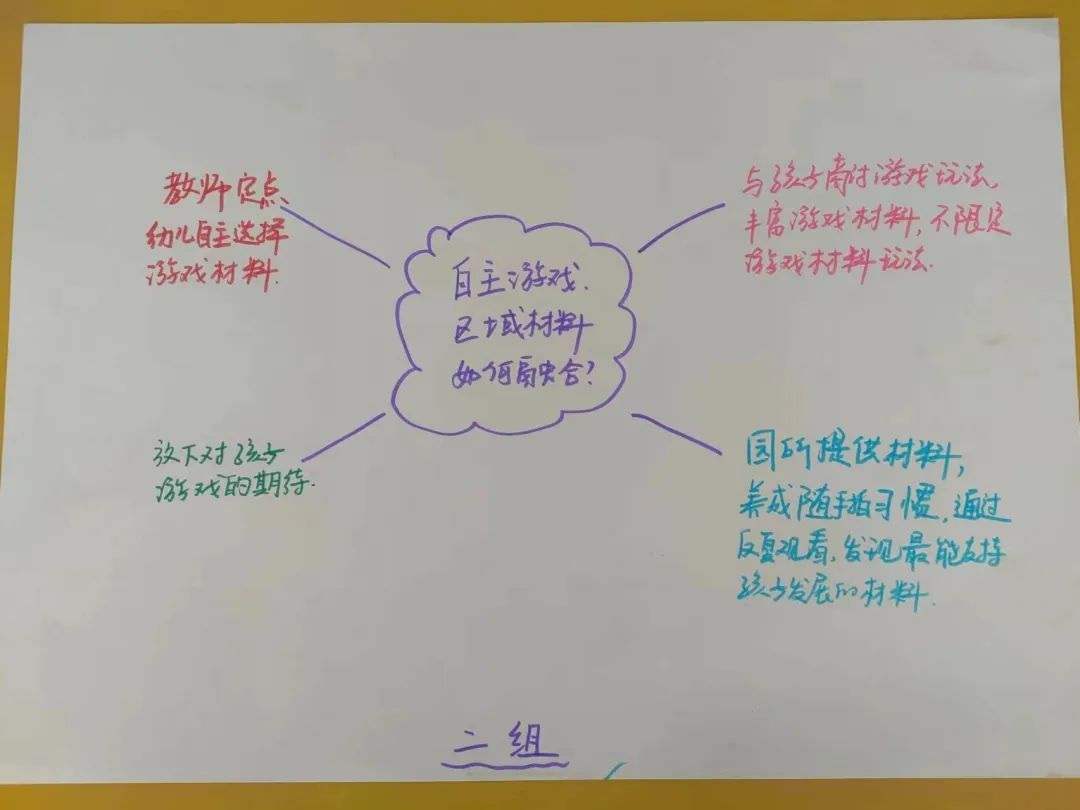 教师定点、
幼儿自主选择
游戏材料.
与孩子商讨游戏玩法,
丰富游戏材料,不限定
游戏材料玩法.
自主游戏.
区域材料
如何融合?
放下对孩子
游戏的期待.
园所提供材料,
养成随手拍习惯,通过
反复观看,发现最能支持
孩子发展的材料.
二组